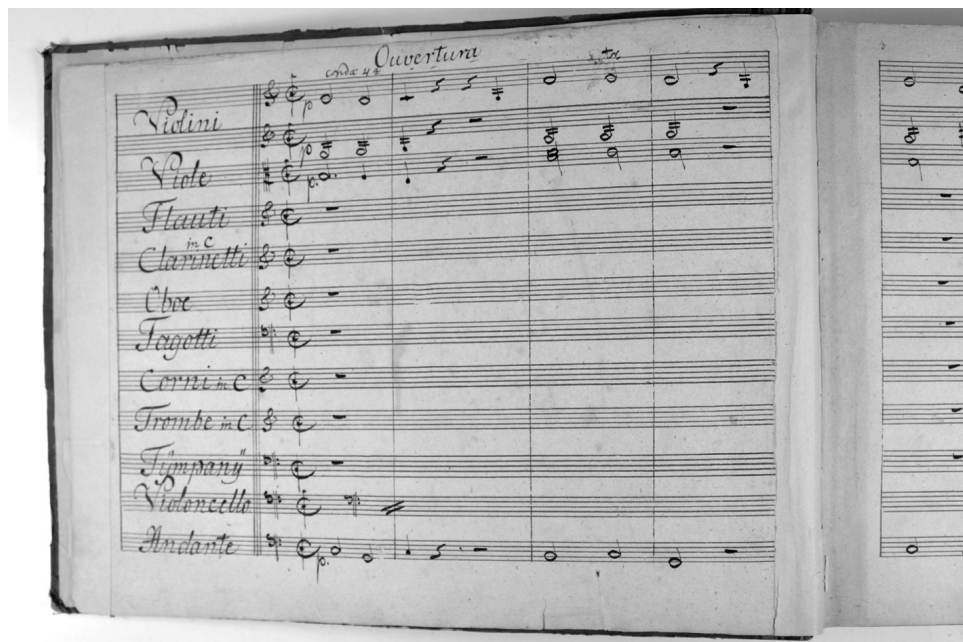 Ouvertura
Violini
p
p
Viole
p.
Flauti
in C
Clarinetti
Oboe
Fagotti
Corni in C
Trombe in C
Tÿmpanÿ
Violoncello
Andante
p.